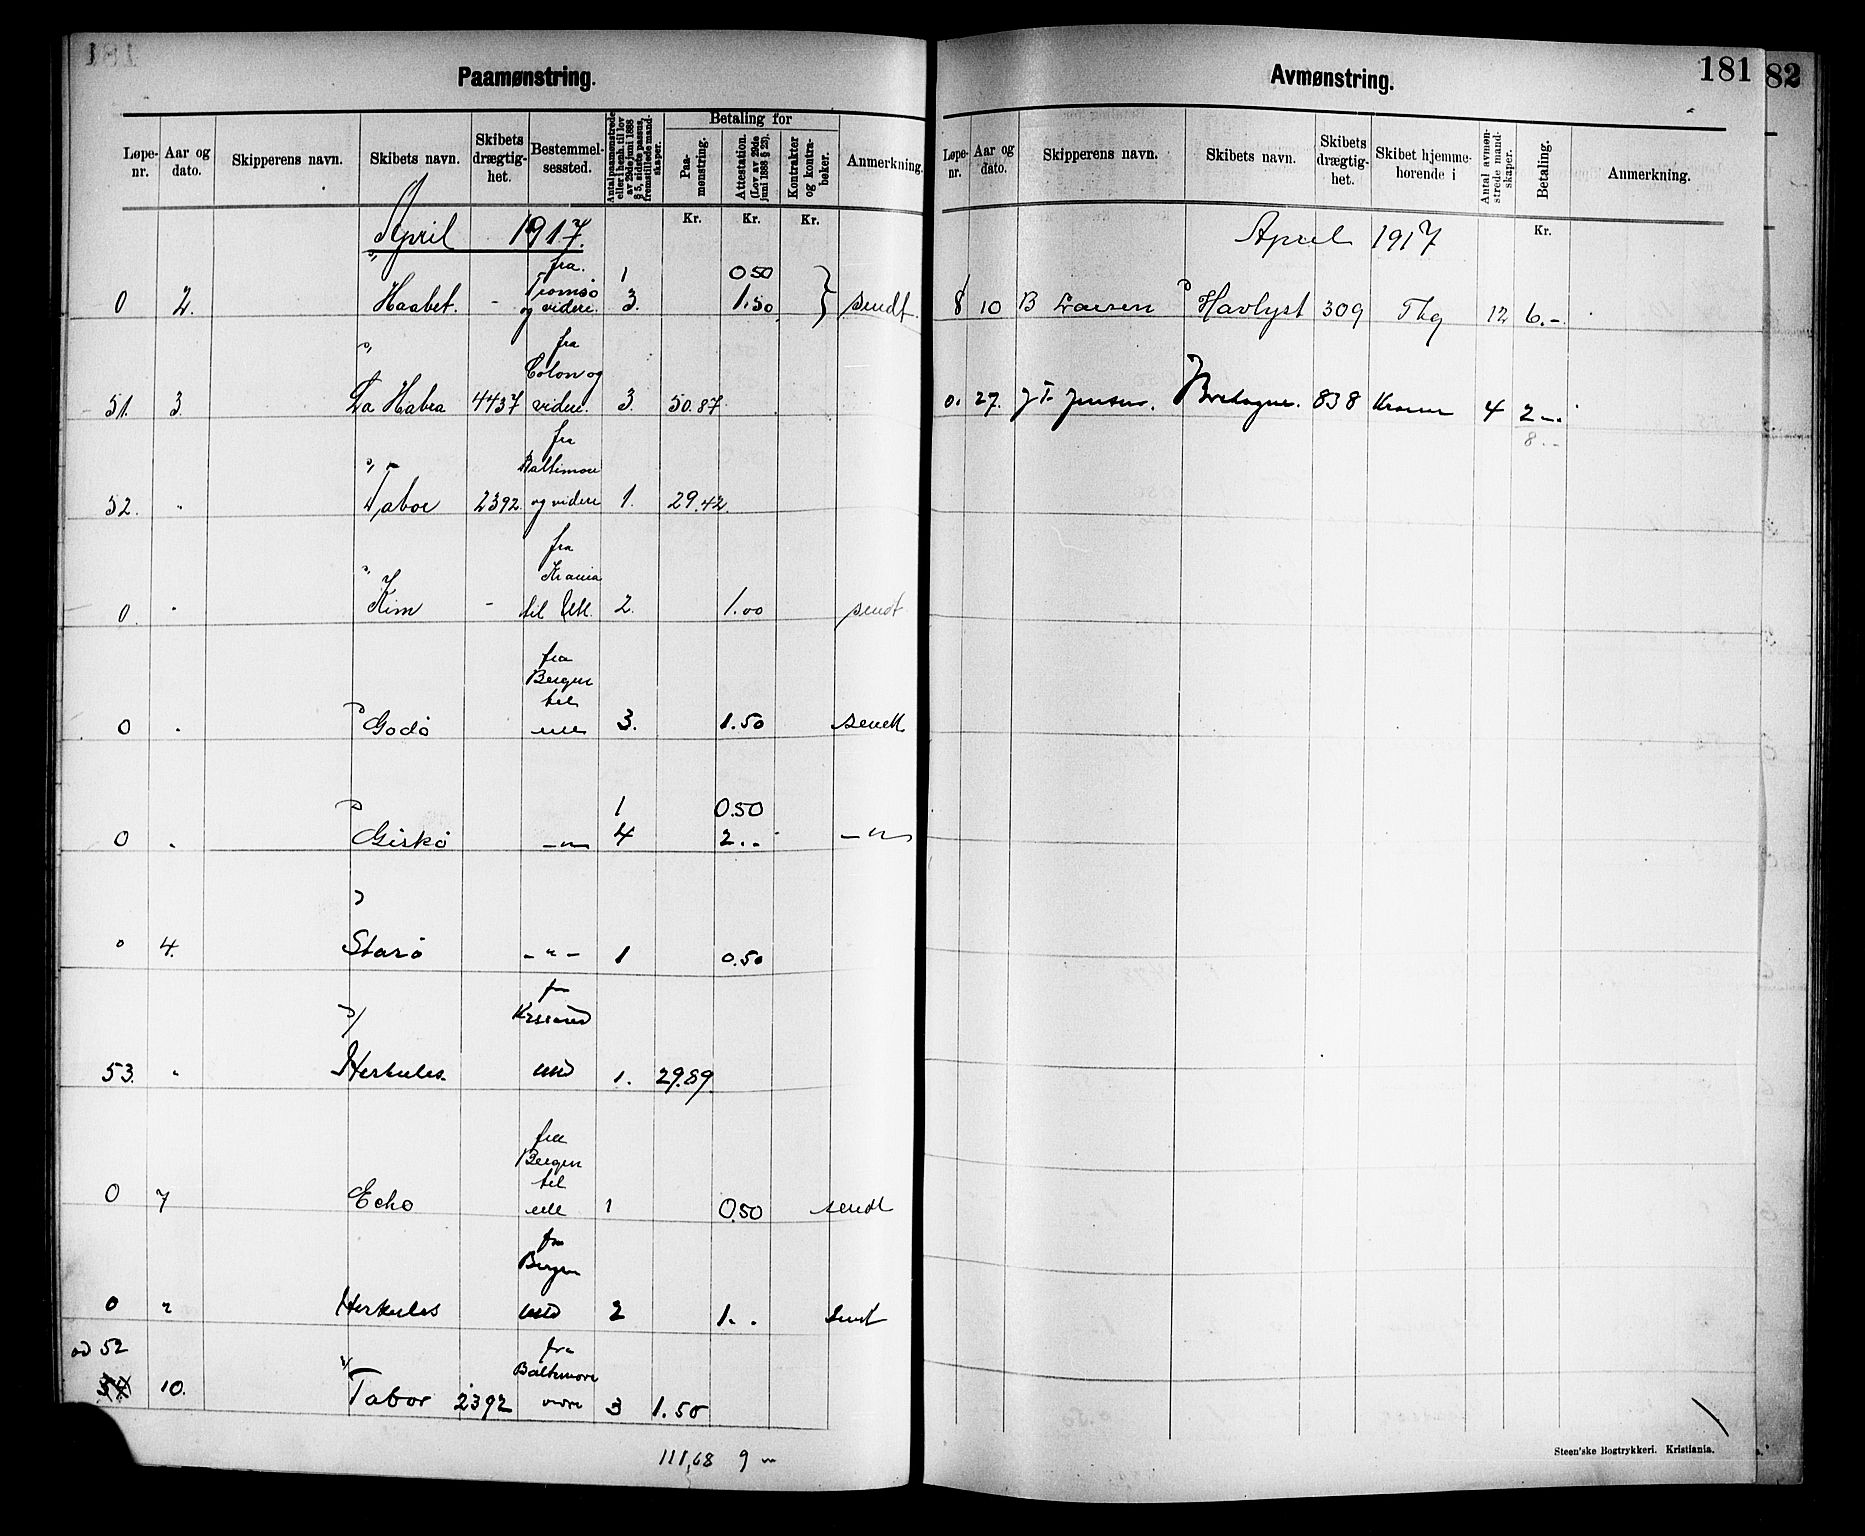 Paamønstring.
Løpe-nr. Aar og dato. Skipperens navn. Skibets navn. Skibets drægtig-het. Bestemmel-sessted. Antal paamønstrede eller i henh. til lov av 29de juni 1888 § 5, sidste passus, fremstillede mand-skaper. Betaling for Paa-mønstring. Attestation. (Lov av 29de juni 1888 § 23). Kontrakter og kontra-bøker. Anmerkning.
Kr. Kr. Kr.
April 1917.
fra. 1 0.50
Tromsø
0 2. Haabet. - og videre. 3. 1.50 sendt
fra
Colon og
51. 3. La Habra 4437 videre. 3. 50.87
fra
Baltimore
52. " Tabor 2392. og videre 1. 29.42.
fra
Krania
0. " Kim - til 2. 1.00 sendt
fra
Bergen
til
0 " Godø 3. 1.50 sendt
1 0.50
0 " Giskø -"- 4 2.- -"-
0 4. Storø -"- 1 0.50
fra
53. " Herkules. 1. 29.89
fra
Bergen
til
0 7 Echo 1 0.50 sendt
fra
Bergen
0 " Herkules 2 1.- sendt
ad 52
fra
Baltimore
54 10. Tabor 2392 vidre 3 1.50
111,68 9 -
Avmønstring.
181
82
Løpe-nr. Aar og dato. Skipperens navn. Skibets navn. Skibets drægtig-het. Skibet hjemme-hørende i Antal avmøn-strede mand-skaper. Betaling. Anmerkning.
Kr.
April 1917
8 10 B Larsen Havlyst 309 Tbg 12 6.-
0. 27. J T. Jensen. Bretagne. 838 4 2-.
8.-
Steen'ske Bogtrykkeri. Kristiania.